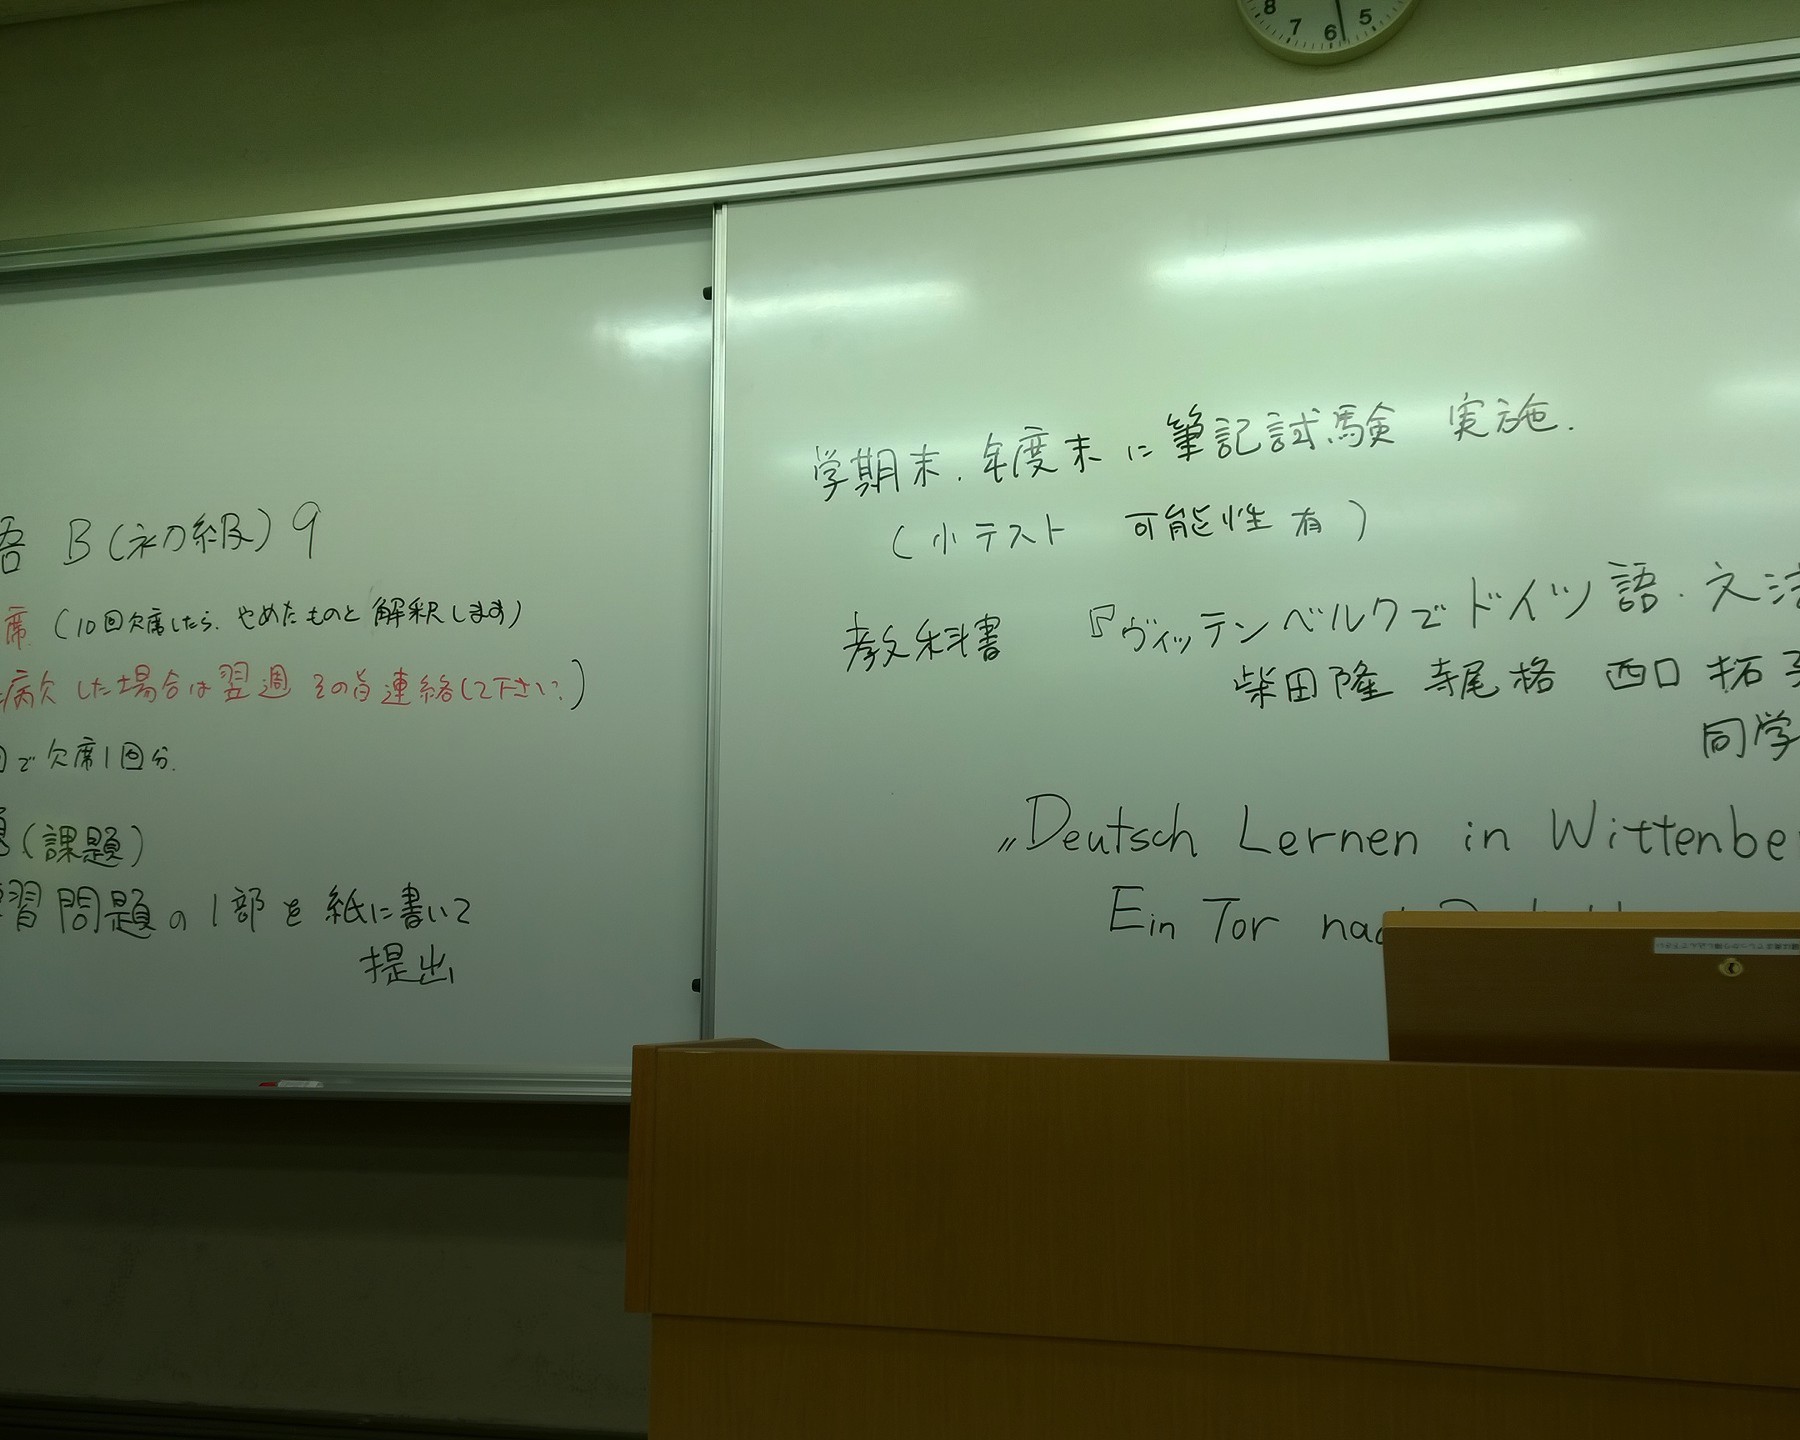 B(初級)9
席 (10回欠席したら、やめたものと解釈します)
病欠した場合は翌週その旨連絡して下さい。)
で欠席1回分.
(課題)
習問題の1部を紙に書いて
提出
8 7 6 5
学期末、年度末に筆記試験 実施.
(小テスト 可能性有)
教科書 『ヴィッテンベルクでドイツ語・文法
柴田隆 寺尾格 西口拓
同学
„Deutsch Lernen in Wittenbe
Ein Tor